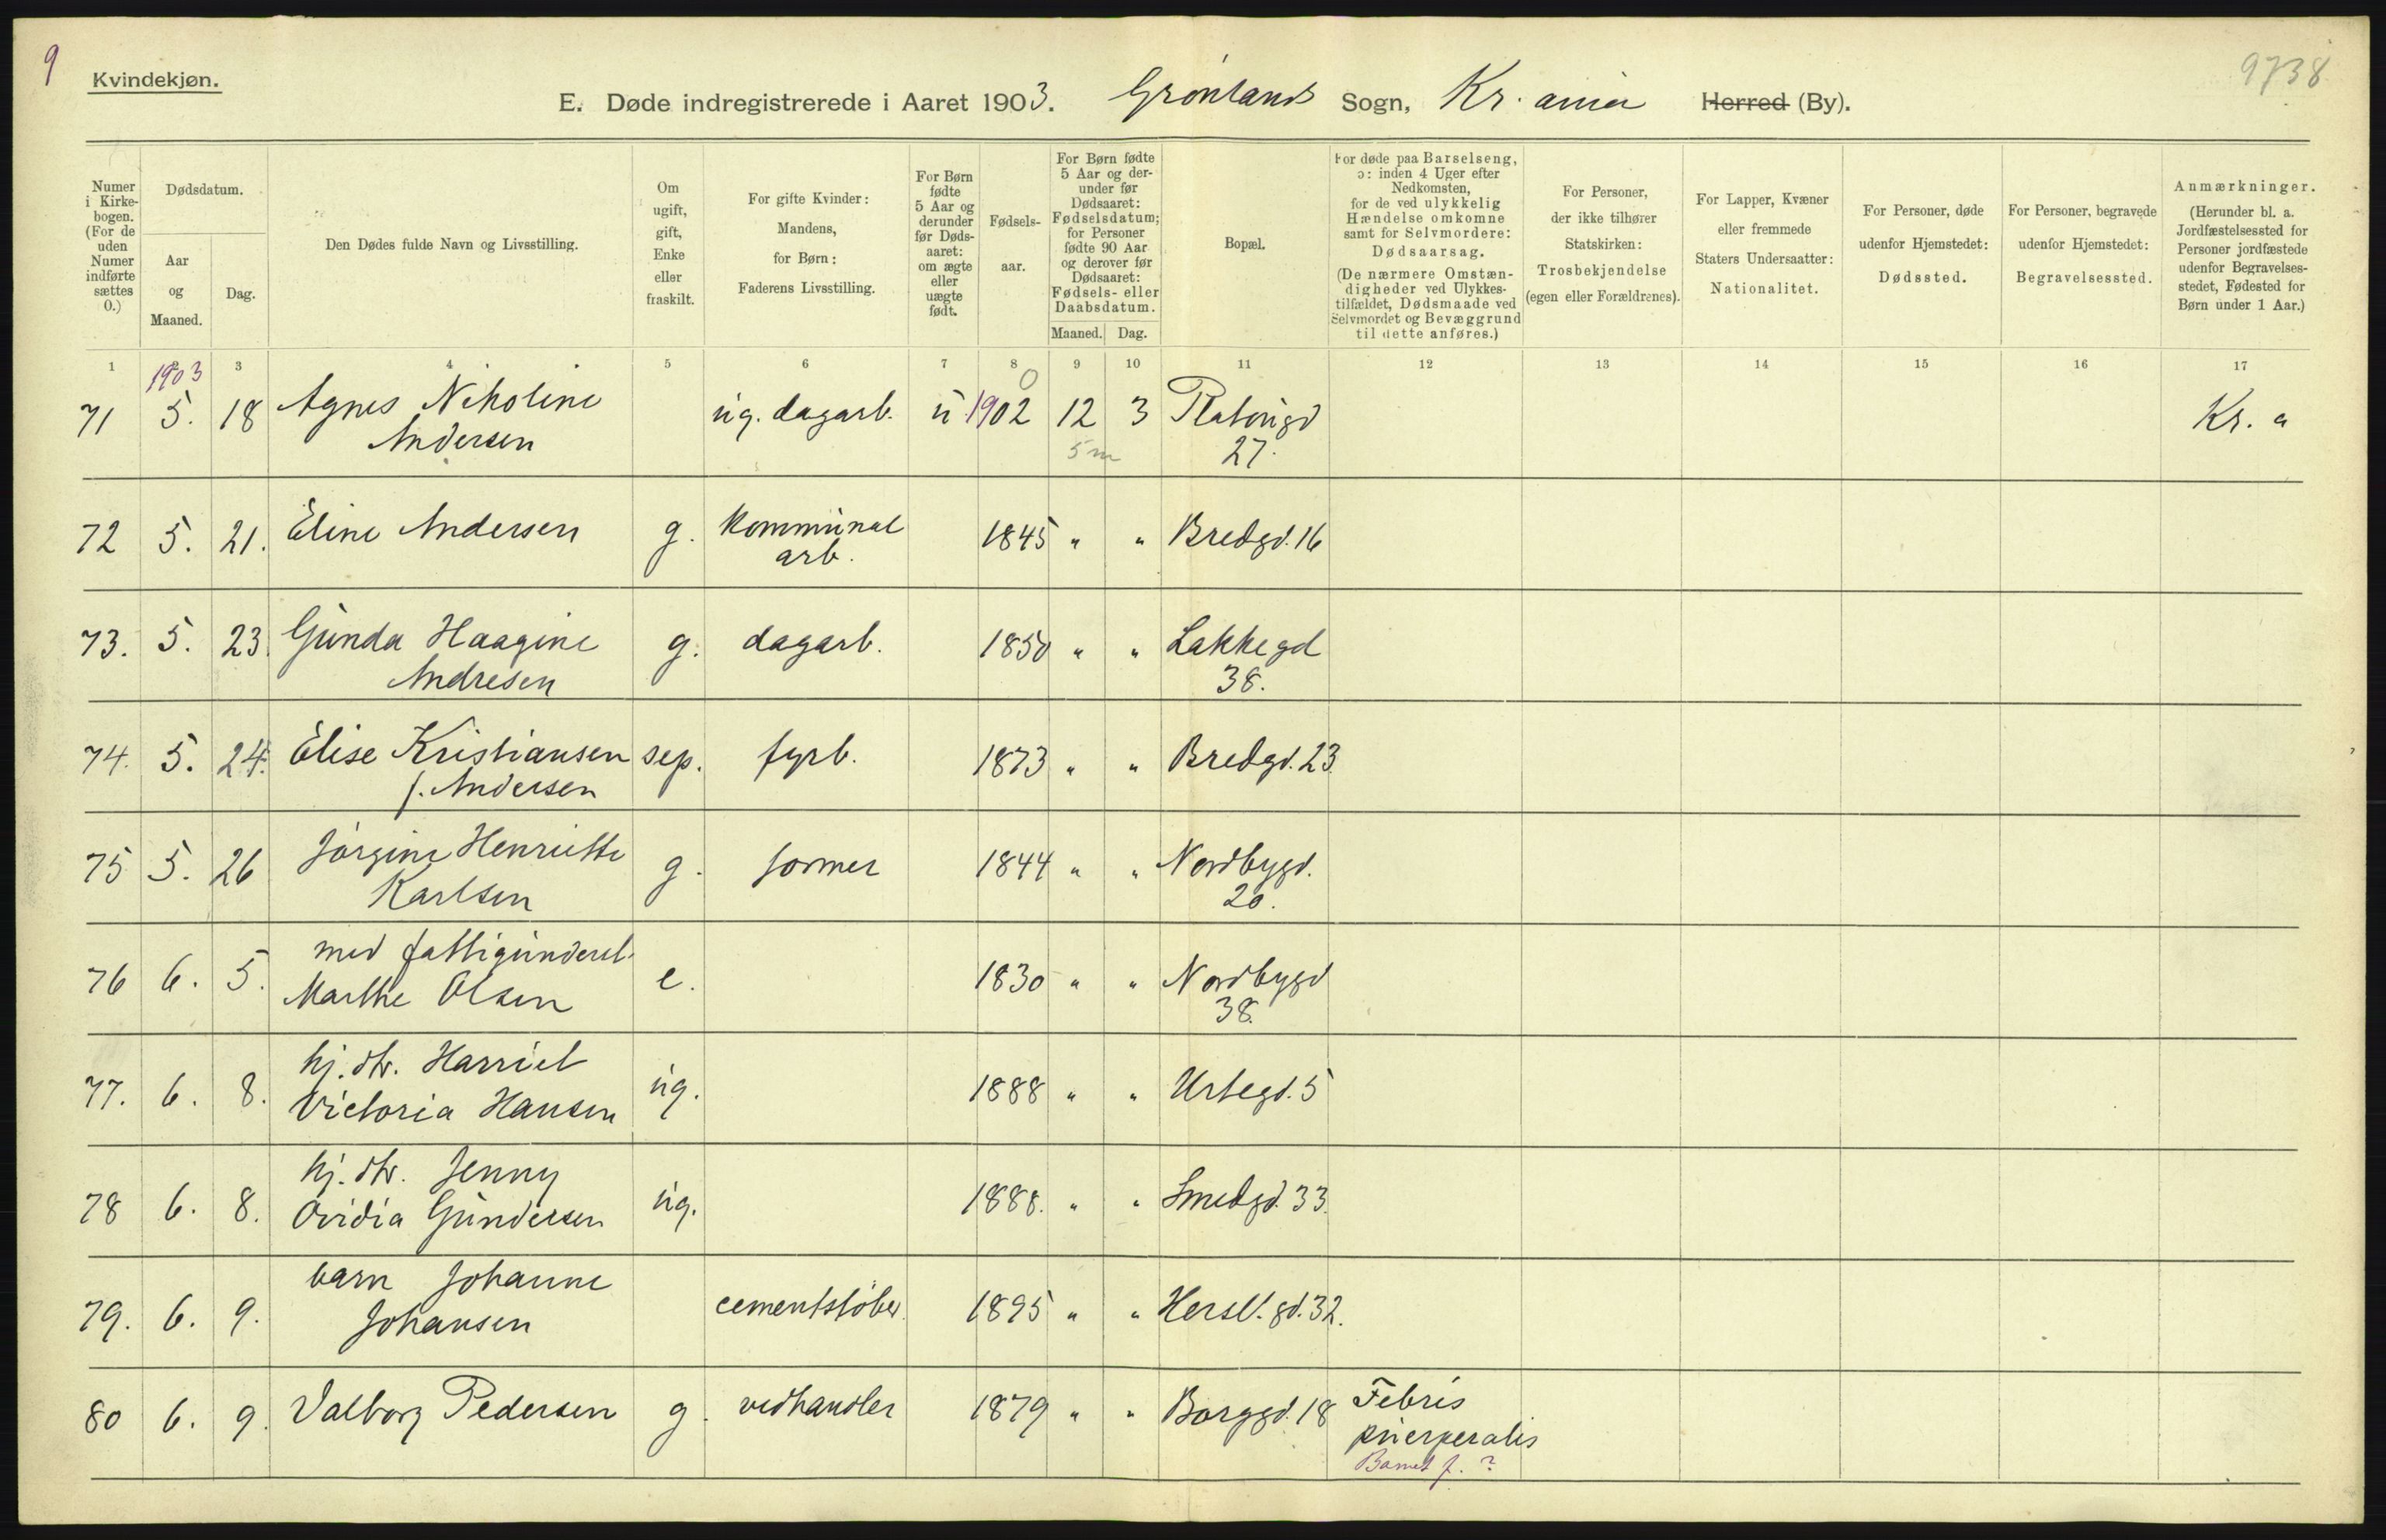 9
Kvindekjøn.
9738
E. Døde indregistrerede i Aaret 1903. Grønlands Sogn, Kr. ania Herred (By).
Numer i Kirke-bogen. (For de uden Numer indførte sættes 0.)
Dødsdatum.
Aar og Maaned.
Dag.
Den Dødes fulde Navn og Livsstilling.
Om ugift, gift, Enke eller fraskilt.
For gifte Kvinder: Mandens, for Børn: Faderens Livsstilling.
For Børn fødte 5 Aar og derunder før Døds-aaret: om ægte eller uægte født.
Fødsels-aar.
For Børn fødte 5 Aar og der-under før Dødsaaret: Fødselsdatum; for Personer fødte 90 Aar og derover før Dødsaaret: Fødsels- eller Daabsdatum.
Maaned. Dag.
Bopæl.
For døde paa Barselseng, ɔ: inden 4 Uger efter Nedkomsten, for de ved ulykkelig Hændelse omkomne samt for Selvmordere: Dødsaarsag. (De nærmere Omstæn-digheder ved Ulykkes-tilfældet, Dødsmaade ved Selvmordet og Bevæggrund til dette anføres.)
For Personer, der ikke tilhører Statskirken: Trosbekjendelse (egen eller Forældrenes).
For Lapper, Kvæner eller fremmede Staters Undersaatter: Nationalitet.
For Personer, døde udenfor Hjemstedet: Dødssted.
For Personer, begravede udenfor Hjemstedet: Begravelsessted.
Anmærkninger. (Herunder bl. a. Jordfæstelsessted for Personer jordfæstede udenfor Begravelses-stedet, Fødested for Børn under 1 Aar.)
1 2 3 4 5 6 7 8 9 10 11 12 13 14 15 16 17
1903 0
71 5. 18 Agnes Nikoline Andersen ug. dagarb. u 1902 12 3 Platougd 27. Kr. a
5 m
72 5. 21. Eline Andersen g. Kommunal arb. 1845 " " Bredgd. 16
73. 5. 23. Gunda Haagine Andresen g. dagarb. 1850 " " Lakkegd 38.
74. 5. 24. Elise Kristiansen f. Andersen sep. fyrb. 1873 " " Bredgd. 23.
75 5. 26 Jørgine Henriette Karlsen g. former 1844 " " Nordbygd. 20.
76 6. 5. med fattigunderst. Marthe Olsen e. 1830 " " Nordbygd 38.
77. 6. 8. hj. dtr. Harriet Victoria Hansen ug. 1888 " " Urtegd. 5
78 6. 8. hj. dtr. Jenny Ovidia Gundersen ug. 1888. " " Smedgd. 33.
79. 6. 9. barn Johanne Johansen cementstøber. 1895 " " Hersl. gd. 32.
80 6. 9. Valborg Pedersen g. vedhandler 1879 " " Borggd. 18 Febris puerperalis
Barnet f. ?